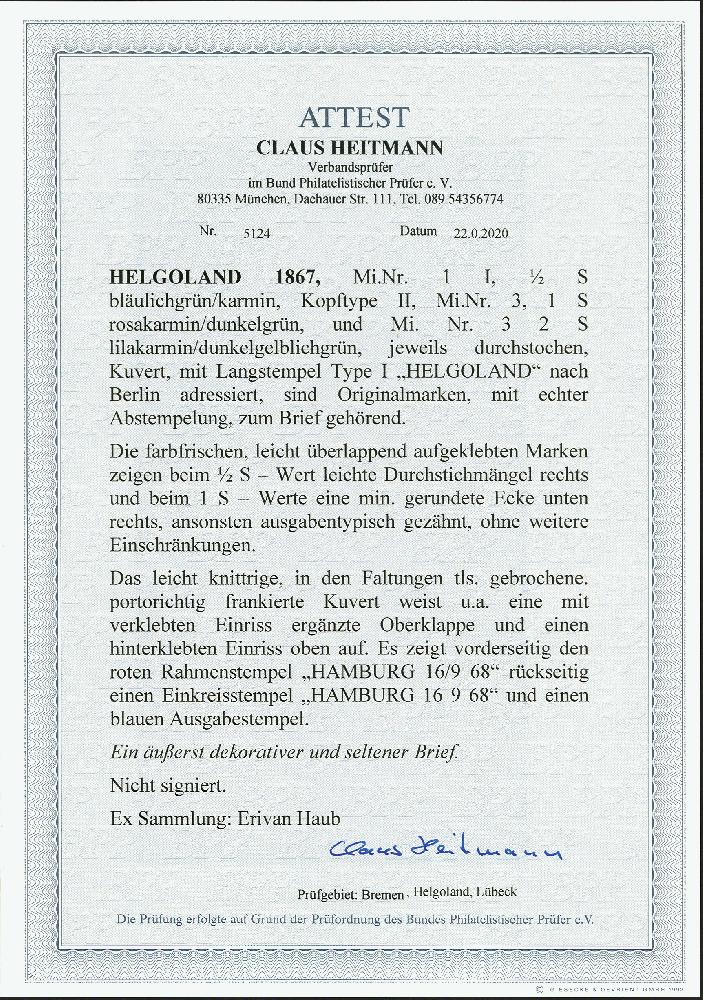 ATTEST
CLAUS HEITMANN
Verbandsprüfer
im Bund Philatelistischer Prüfer e. V.
80335 München, Dachauer Str. 111, Tel. 089 54356774
Nr. 5124 Datum 22.0.2020
HELGOLAND 1867, Mi.Nr. 1 I, ½ S
bläulichgrün/karmin, Kopftype II, Mi.Nr. 3, 1 S
rosakarmin/dunkelgrün, und Mi. Nr. 3 2 S
lilakarmin/dunkelgelblichgrün, jeweils durchstochen,
Kuvert, mit Langstempel Type I „HELGOLAND“ nach
Berlin adressiert, sind Originalmarken, mit echter
Abstempelung, zum Brief gehörend.
Die farbfrischen, leicht überlappend aufgeklebten Marken
zeigen beim ½ S – Wert leichte Durchstichmängel rechts
und beim 1 S – Werte eine min. gerundete Ecke unten
rechts, ansonsten ausgabentypisch gezähnt, ohne weitere
Einschränkungen.
Das leicht knittrige, in den Faltungen tls. gebrochene,
portorichtig frankierte Kuvert weist u.a. eine mit
verklebten Einriss ergänzte Oberklappe und einen
hinterklebten Einriss oben auf. Es zeigt vorderseitig den
roten Rahmenstempel „HAMBURG 16/9 68“ rückseitig
einen Einkreisstempel „HAMBURG 16 9 68“ und einen
blauen Ausgabestempel.
Ein äußerst dekorativer und seltener Brief.
Nicht signiert.
Ex Sammlung: Erivan Haub
Claus Heitmann
Prüfgebiet: Bremen, Helgoland, Lübeck
Die Prüfung erfolgte auf Grund der Prüfordnung des Bundes Philatelistischer Prüfer e.V.
© GIESECKE & DEVRIENT GMBH